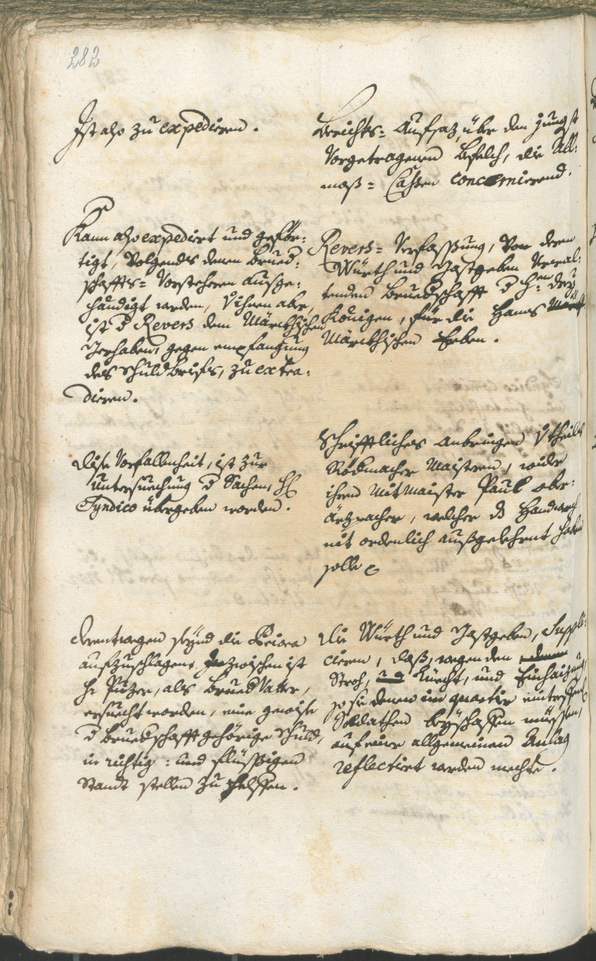 282
Ist also zu expediren.
Berichts= Aufsaz, über den jungst
Vorgetragenen befelch, die All-
moß= Cassen concernierend.
Kann also expedirt und geför-
tigt, Volgends denen Brued-
schaffts= Vorstehern außge-
händigt werden, Vihnen aber,
ist d Revers dem Märckhischen
Gerhaben, gegen empfangung
des schuldbriefs, zu extra-
diren.
Revers= Verfassung, Von denen
Würth und Gastgeben
Brueds­chafft d hh: drey
Königen, für die Hans
Märckhischen Erben.
Dise Vorfallenheit, ist zur
Untersuechung d Sachen, H
Syndico übergeben worden.
Schrifftliches Anbringen
Maistern, wider
ihren Mitmaister Paul ober-
welcher ds Handwerch
nit ordenlich außgelehrnt haben
solle
Derentwegen seynd die Priora
aufzuschlagen, Inzwischen ist
H: als Bruedvater,
ersuecht worden, eine gewise
d Bruedschafft gehörige Schuld,
in richtig: und flüssigen
Standt stellen zu helffen.
Die Würth und Gastgeben, Suppli-
ciren, daß, wegen den
Stroh, und Einhaizung
so sie denen im quartir
Soldathen beyschaffen müessen,
auf eine allgemeinen Anlag
reflectirt werden mechte.